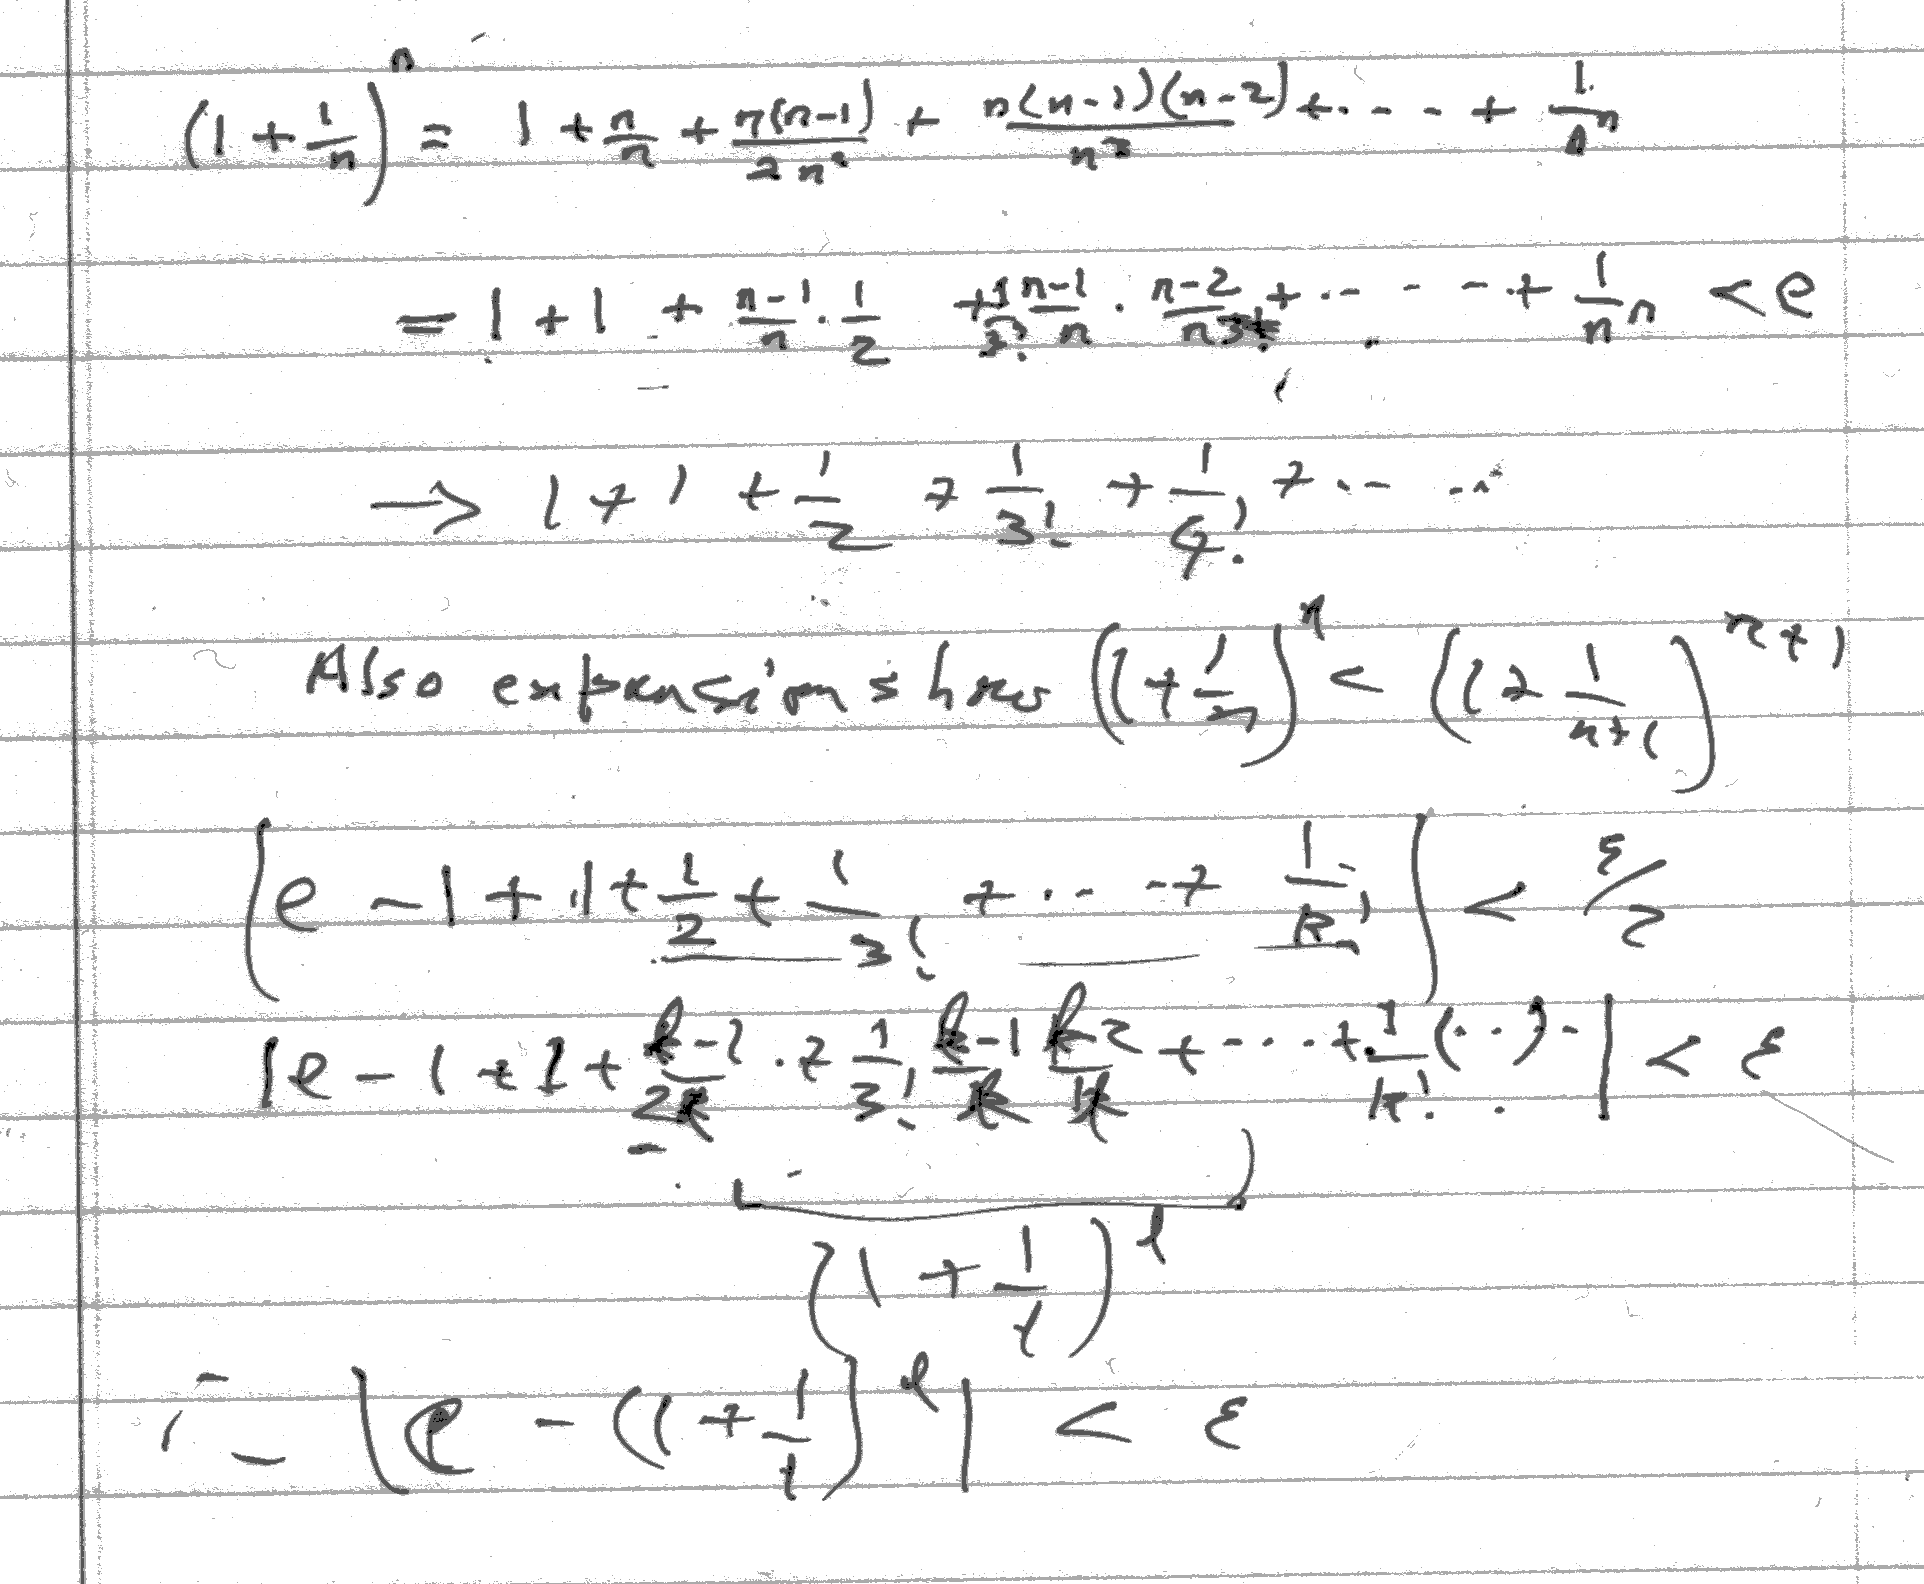 (1 + 1/n)^n = 1 + n/n + n(n-1)/2n² + n(n-1)(n-2)/n³ + ... + 1/n^n
= 1 + 1 + n-1/n · 1/2 + 1/3! n-1/n · n-2/n + ... + 1/n^n < e
→ 1 + 1 + 1/2 + 1/3! + 1/4! + ... ...
Also expansion shows (1 + 1/n)^n < (1 + 1/n+1)^n+1
|e - 1 + 1 + 1/2 + 1/3! + ... + 1/k!| < ε/2
|e - 1 + 1 + l-1/2l · + 1/3! l-1/l l-2/l + ... + 1/k! (...) | < ε
(1 + 1/l)^l
|e - (1 + 1/l)^l| < ε